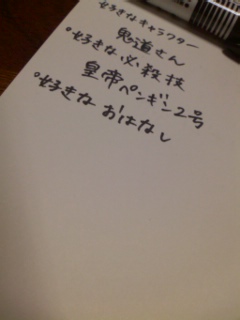 好きなキャラクター
鬼道さん
°好きな必殺技
皇帝ペンギン2号
°好きなおはなし